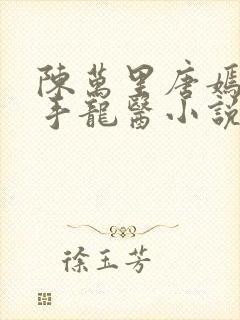 陳萬里唐嫣
手龍醫小說
徐玉芳